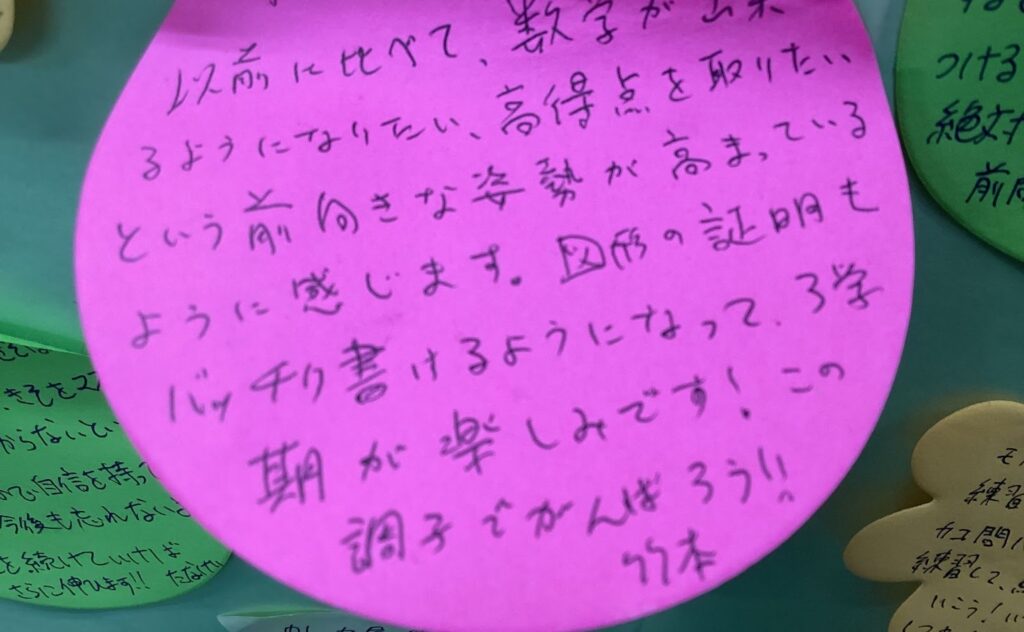 以前に比べて、数学が出来
るようになりたい、高得点を取りたい
という前向きな姿勢が高まっている
ように感じます。図形の証明も
バッチリ書けるようになって、3学
期が楽しみです！この
調子でがんばろう!!
竹本
つける
絶対
前向
きそをマス
からないとい
ので自信を持っ
今後も忘れないよ
を続けていけば
さらに伸びます!! たなけん
練習
練習して、
いこう！い